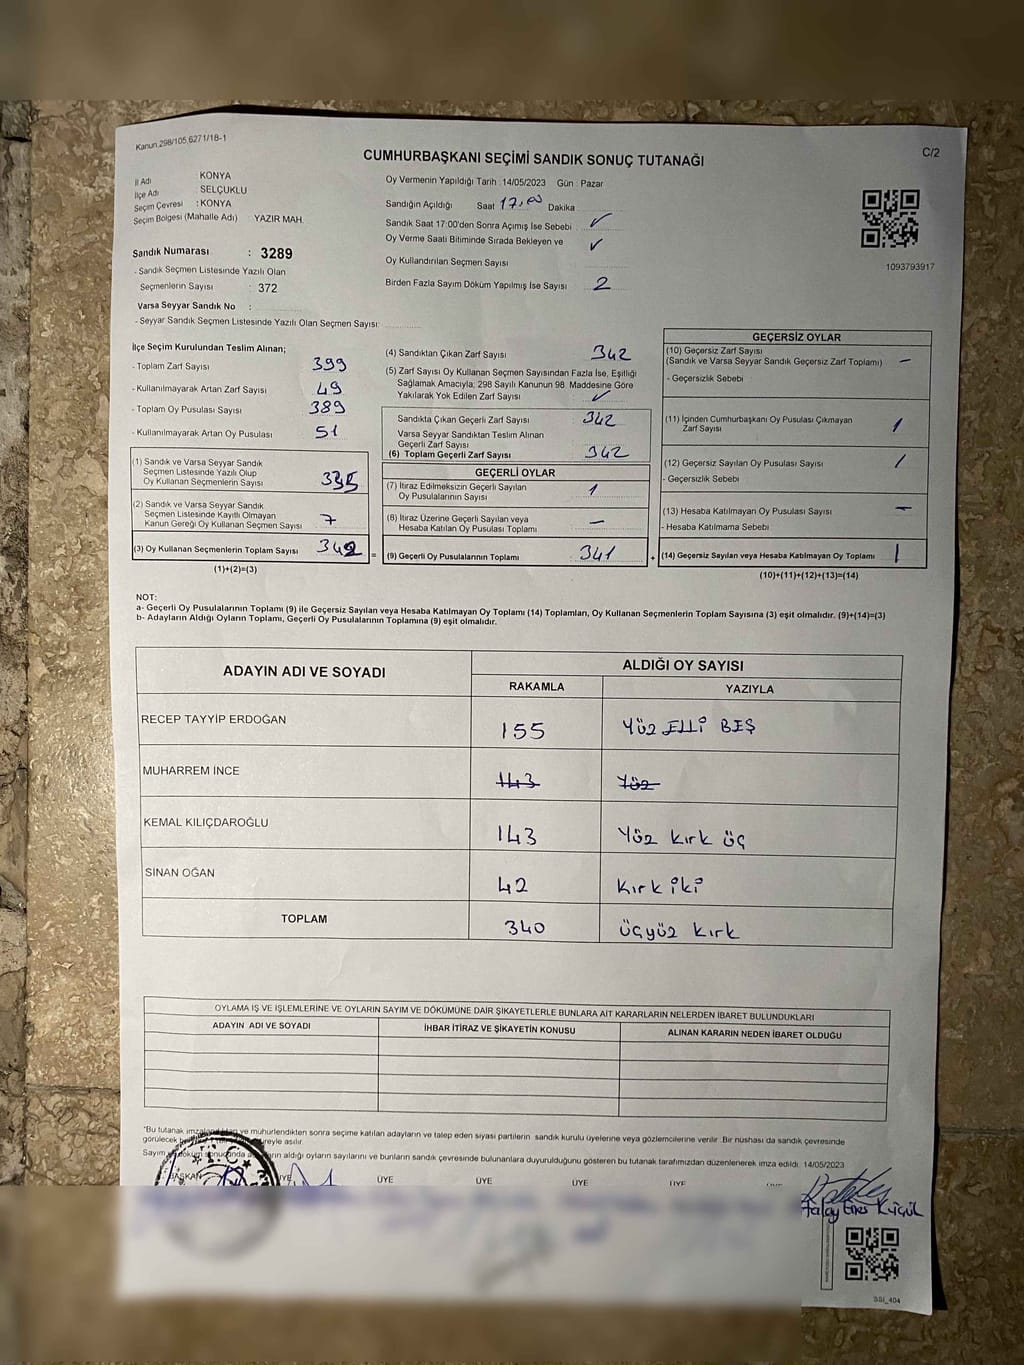 Kanun.298/105,6271/18-1
C/2
CUMHURBAŞKANI SEÇİMİ SANDIK SONUÇ TUTANAĞI
İl Adı KONYA
İlçe Adı : SELÇUKLU
Seçim Çevresi : KONYA
Seçim Bölgesi (Mahalle Adı) YAZIR MAH.
Sandık Numarası : 3289
- Sandık Seçmen Listesinde Yazılı Olan
Seçmenlerin Sayısı : 372
Varsa Seyyar Sandık No :
- Seyyar Sandık Seçmen Listesinde Yazılı Olan Seçmen Sayısı:
Oy Vermenin Yapıldığı Tarih : 14/05/2023 Gün : Pazar
Sandığın Açıldığı Saat 17,00 Dakika
Sandık Saat 17:00'den Sonra Açılmış İse Sebebi
Oy Verme Saati Bitiminde Sırada Bekleyen ve
Oy Kullandırılan Seçmen Sayısı
Birden Fazla Sayım Döküm Yapılmış İse Sayısı 2
1093793917
İlçe Seçim Kurulundan Teslim Alınan;
- Toplam Zarf Sayısı 399
- Kullanılmayarak Artan Zarf Sayısı 49
- Toplam Oy Pusulası Sayısı 389
- Kullanılmayarak Artan Oy Pusulası 51
(1) Sandık ve Varsa Seyyar Sandık
Seçmen Listesinde Yazılı Olup
Oy Kullanan Seçmenlerin Sayısı 335
(2) Sandık ve Varsa Seyyar Sandık
Seçmen Listesinde Kayıtlı Olmayan
Kanun Gereği Oy Kullanan Seçmen Sayısı 7
(3) Oy Kullanan Seçmenlerin Toplam Sayısı 342 =
(1)+(2)=(3)
(4) Sandıktan Çıkan Zarf Sayısı 342
(5) Zarf Sayısı Oy Kullanan Seçmen Sayısından Fazla İse, Eşitliği
Sağlamak Amacıyla; 298 Sayılı Kanunun 98. Maddesine Göre
Yakılarak Yok Edilen Zarf Sayısı
Sandıkta Çıkan Geçerli Zarf Sayısı 342
Varsa Seyyar Sandıktan Teslim Alınan
Geçerli Zarf Sayısı
(6) Toplam Geçerli Zarf Sayısı 342
GEÇERLİ OYLAR
(7) İtiraz Edilmeksizin Geçerli Sayılan 1
Oy Pusulalarının Sayısı
(8) İtiraz Üzerine Geçerli Sayılan veya —
Hesaba Katılan Oy Pusulası Toplamı
(9) Geçerli Oy Pusulalarının Toplamı 341 +
GEÇERSİZ OYLAR
(10) Geçersiz Zarf Sayısı
(Sandık ve Varsa Seyyar Sandık Geçersiz Zarf Toplamı) —
- Geçersizlik Sebebi
(11) İçinden Cumhurbaşkanı Oy Pusulası Çıkmayan 1
Zarf Sayısı
(12) Geçersiz Sayılan Oy Pusulası Sayısı /
- Geçersizlik Sebebi
(13) Hesaba Katılmayan Oy Pusulası Sayısı —
- Hesaba Katılmama Sebebi
(14) Geçersiz Sayılan veya Hesaba Katılmayan Oy Toplamı 1
(10)+(11)+(12)+(13)=(14)
NOT:
a- Geçerli Oy Pusulalarının Toplamı (9) ile Geçersiz Sayılan veya Hesaba Katılmayan Oy Toplamı (14) Toplamları, Oy Kullanan Seçmenlerin Toplam Sayısına (3) eşit olmalıdır. (9)+(14)=(3)
b- Adayların Aldığı Oyların Toplamı, Geçerli Oy Pusulalarının Toplamına (9) eşit olmalıdır.
ADAYIN ADI VE SOYADI ALDIĞI OY SAYISI
RAKAMLA YAZIYLA
RECEP TAYYİP ERDOĞAN 155 YÜZ ELLİ BEŞ
MUHARREM İNCE 143 Yüz
KEMAL KILIÇDAROĞLU 143 Yüz kırk üç
SİNAN OĞAN 42 kırk iki
TOPLAM 340 üçyüz kırk
OYLAMA İŞ VE İŞLEMLERİNE VE OYLARIN SAYIM VE DÖKÜMÜNE DAİR ŞİKAYETLERLE BUNLARA AİT KARARLARIN NELERDEN İBARET BULUNDUKLARI
ADAYIN ADI VE SOYADI İHBAR İTİRAZ VE ŞİKAYETİN KONUSU ALINAN KARARIN NEDEN İBARET OLDUĞU
"Bu tutanak ve mühürlendikten sonra seçime katılan adayların ve talep eden siyasi partilerin sandık kurulu üyelerine veya gözlemcilerine verilir. Bir nüshası da sandık çevresinde
görülecek süreyle asılır.
Sayım döküm sonucunda aldığı oyların sayılarını ve bunların sandık çevresinde bulunanlara duyurulduğunu gösteren bu tutanak tarafımızdan düzenlenerek imza edildi. 14/05/2023
BAŞKAN ÜYE ÜYE ÜYE ÜYE
T.C.
SSİ_404